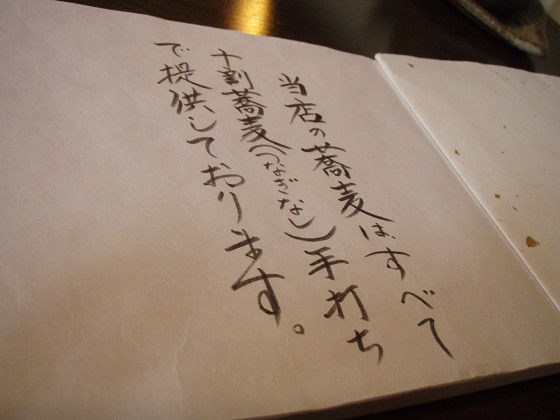 当店の蕎麦は、すべて
十割蕎麦(つなぎなし)手打ち
で提供しております。